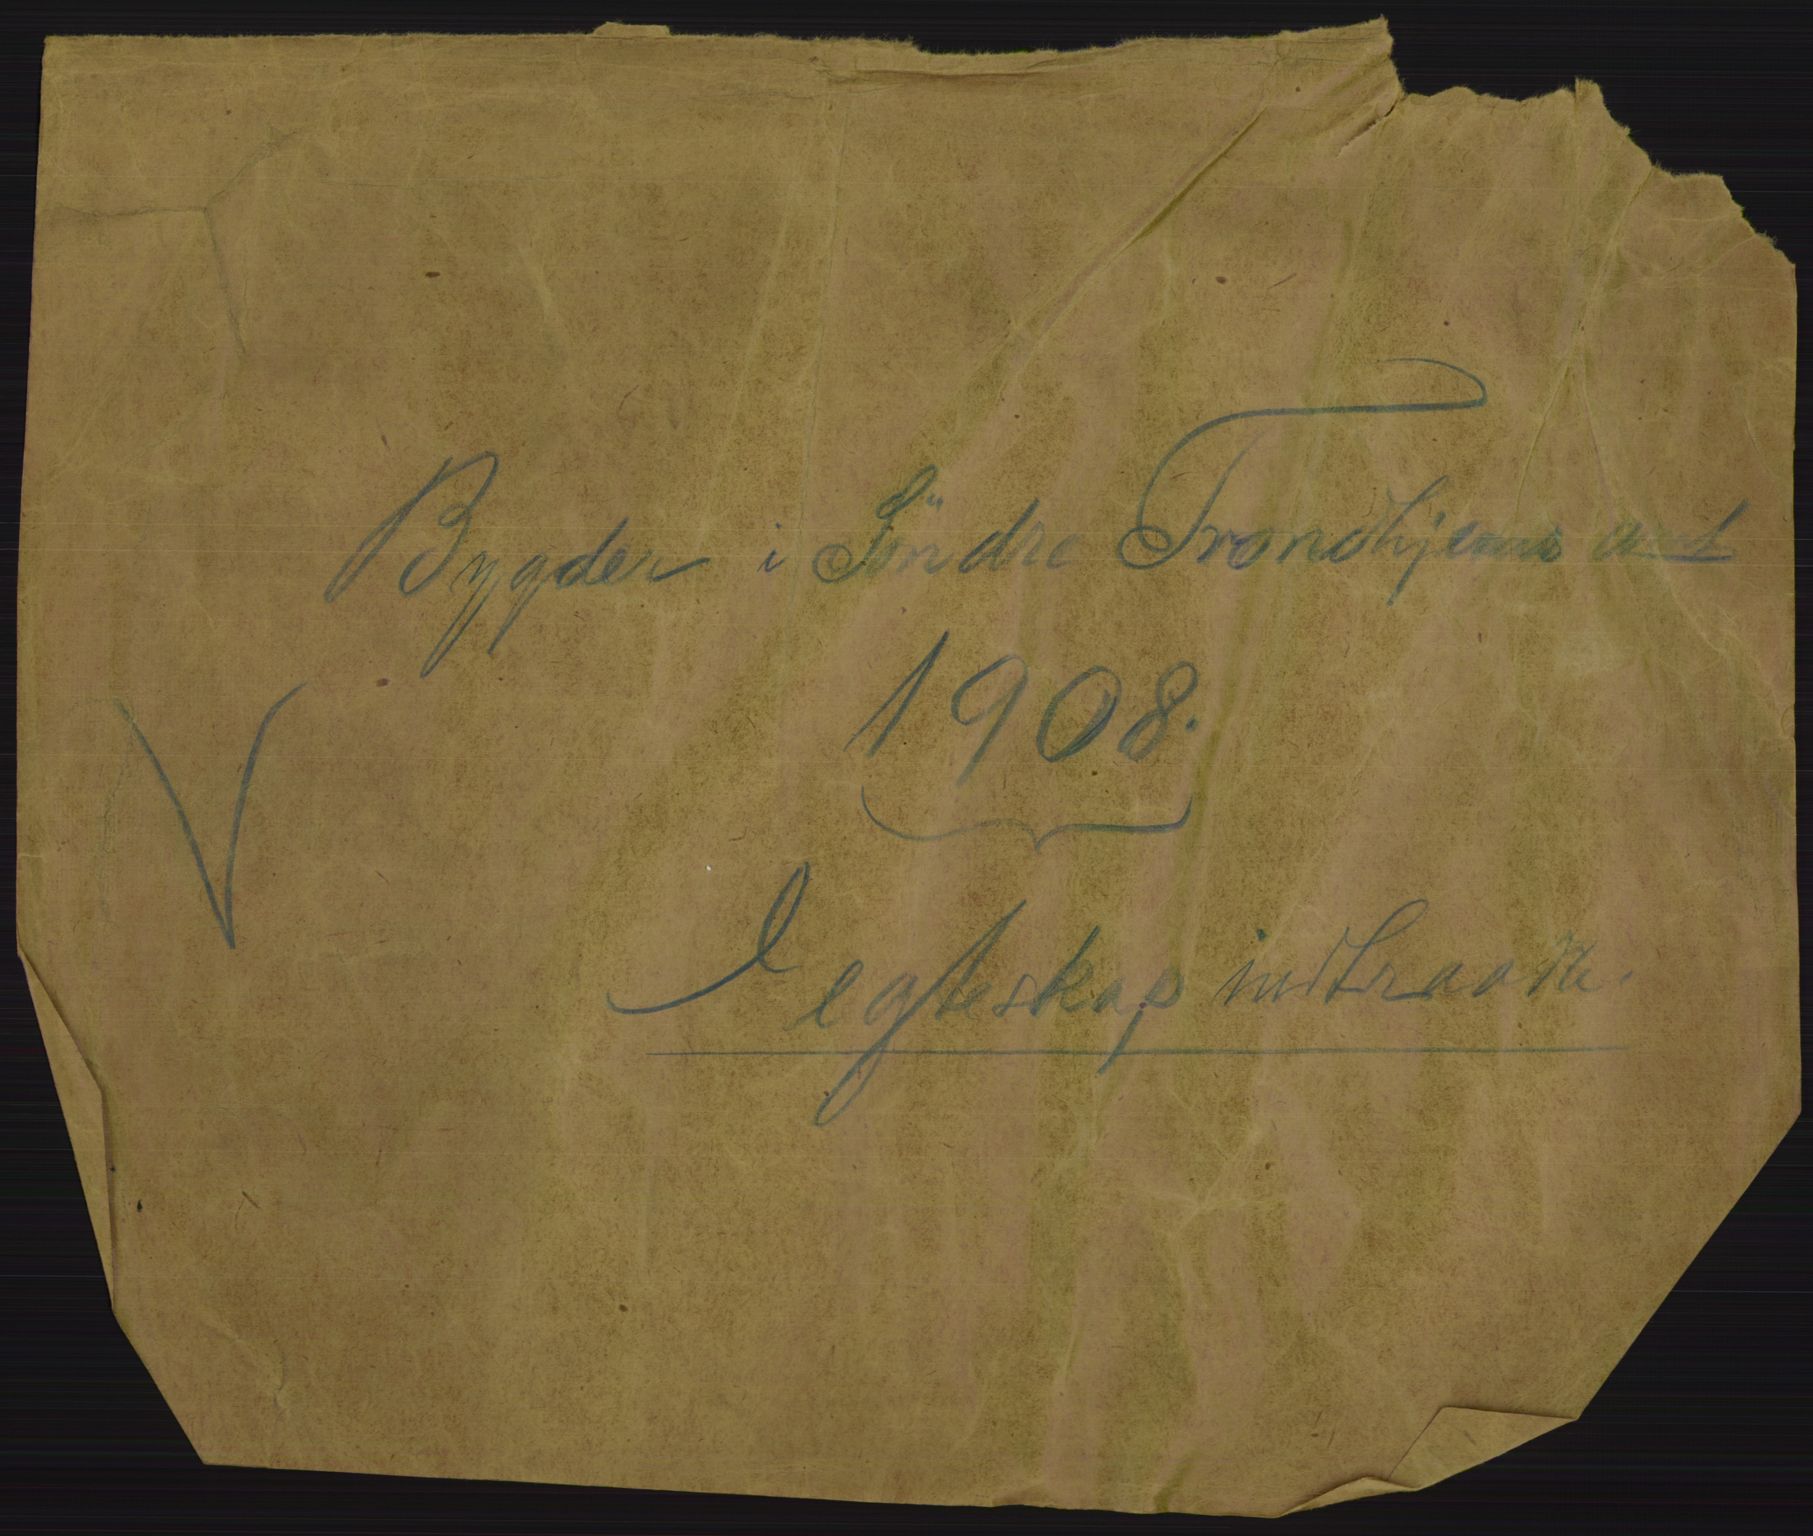 Bygder i Söndre Trondhjems amt
1908.
I egteskap indtraadte.